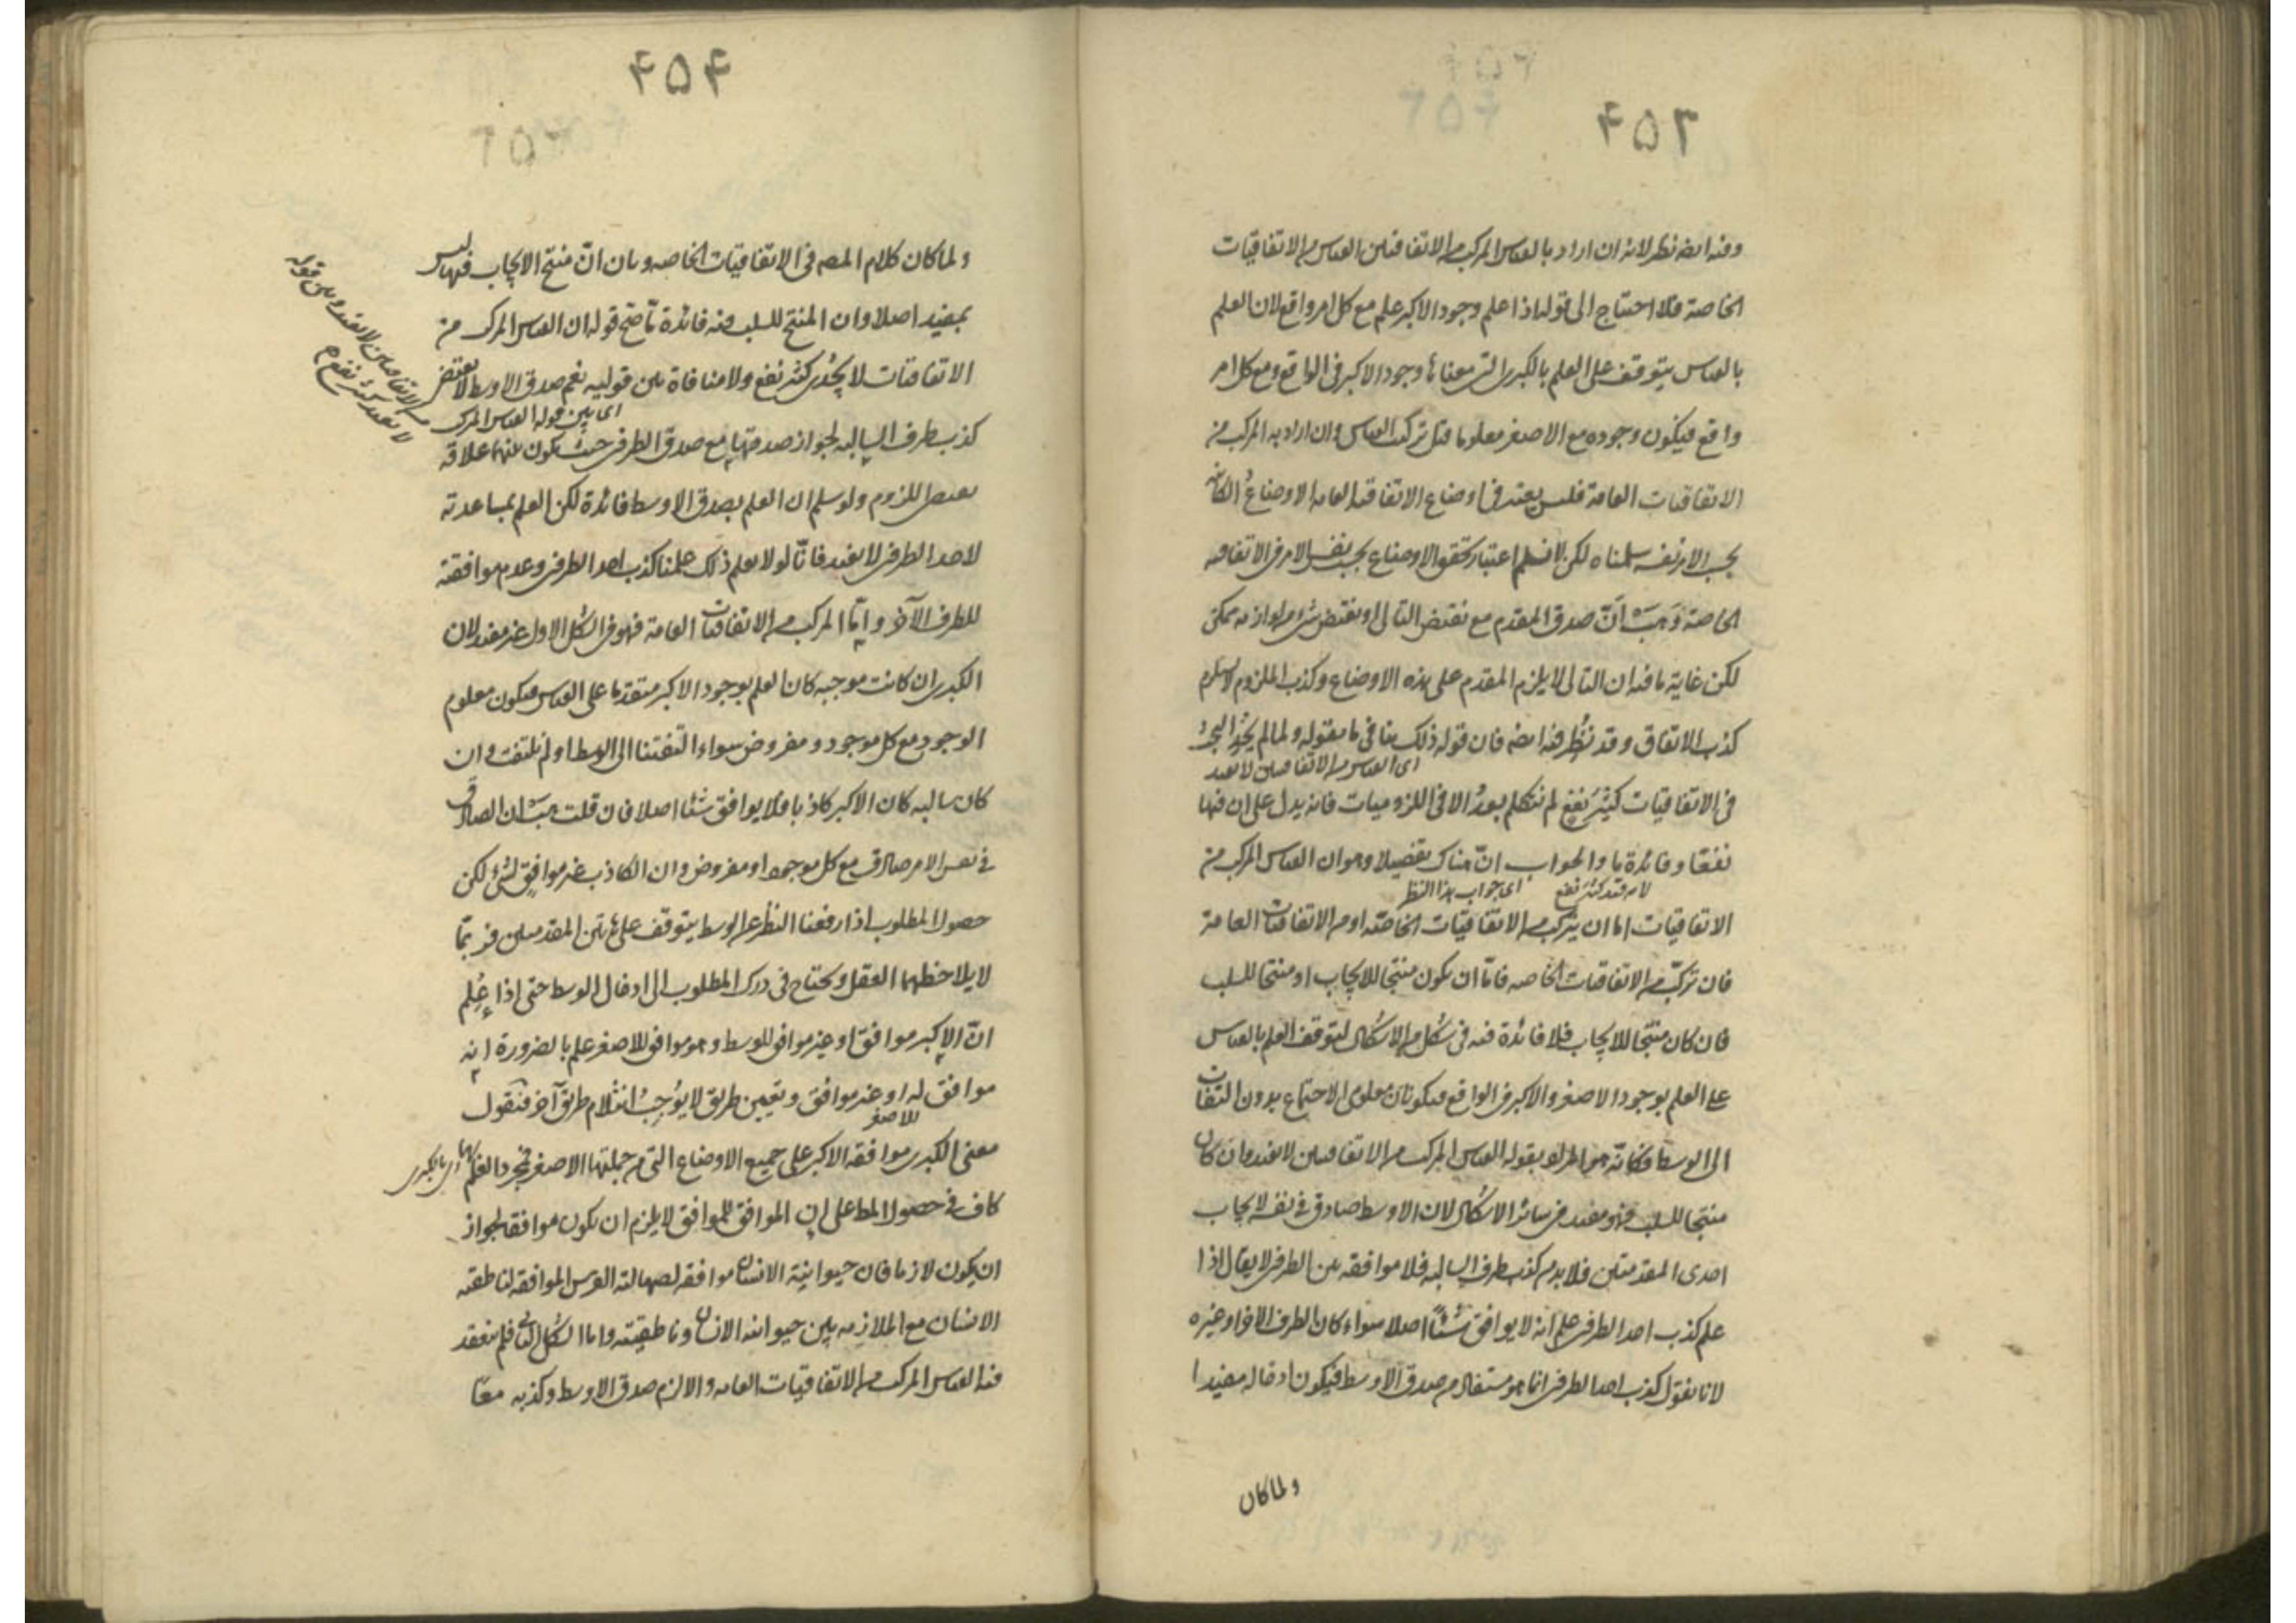 ۴۵۳
وفيه ايضه نظر لانه ان اراد بالقياس المركب من الاتفاقيتين القياس من الاتفاقيات
الخاصة فلا احتياج الى قولنا اذا علم وجود الاكبر علم مع كل امر واقع لان العلم
بالقياس يتوقف على العلم بالكبرى التى معناها وجود الاكبر فى الواقع ومع كل امر
واقع فيكون وجوده مع الاصغر معلوما قبل تركيب القياس وان اراد به المركب من
الاتفاقيات العامة فليس يعتبر فى اوضاع الاتفاقية العامه الاوضاع الكائنة
بحسب الامر نفسه سلمناه لكن لا نسلم اعتبار تحقق الاوضاع بحسب نفس الامر فى الاتفاقيه
الخاصة وَهَب اَنّ صدق المقدم مع نقيض التالى او نقيض شىء من لوازمه ممكن
لكن غاية ما فيه ان التالى لا يلزم المقدم على هذه الاوضاع وكذب الملزوم لا يستلزم
كذب الاتفاق وقد نُظِر فيه ايضه فان قوله ذلك ينافى ما يقوله ولما لم يُجْدِ
اى القياس من الاتفاقيتين لا يفيد
فى الاتفاقيات كثيرَ نفعٍ لم نتكلم بعدُ الا فى اللزوميات فانه يدل على ان فيها
نفعًا وفائدة ما والجواب انّ هناك تفصيلا وهو ان القياس المركب من
لانه قيد كثير نفع اى جواب هذا النظر
الاتفاقيات اما ان يتركب من الاتفاقيّات الخاصّه او من الاتفاقيات العامة
فان تركّب من الاتفاقيات الخاصه فامّا ان يكون منتجا للايجاب او منتجا للسلب
فان كان منتجا للايجاب فلا فائدة فيه فى شكل من الاشكال لتوقف العلم بالقياس
على العلم بوجود الاصغر والاكبر فى الواقع فيكونان معلومى الاجتماع بدون التفات
الى الوسط فكانّه هو المراد بقوله القياس المركب من الاتفاقيتين لا يفيد وان كان
منتجا للسلب فهو مفيد فى سائر الاشكال لان الاوسط صادق فى نفسه لايجاب
احدى المقدمتين فلا بد من كذب طرف السالبه فلا موافقه بين الطرفين لا يقال اذا
علم كذب احد الطرفين علم انه لا يوافق شئًا اصلا سواء كان الطرف الاخر او غيره
لانا نقول كذب احد الطرفين انما هو مستفاد من صدق الاوسط فيكون ادخاله مفيدا
ولما كان
۴۵۴
ولما كان كلام المصه فى الاتفاقيات الخاصه وبان انّ منتج الايجاب فيها ليس
بمفيد اصلا وان المنتج للسلب فيه فائدة ما صح قوله ان القياس المركب من
الاتفاقيات لا يُجدى كثير نفع ولا منافاة بين قوليه نعم صدق الاوسط لا يقتضى
اى بين قوله القياس المركب
من الاتفاقيتين لا يفيد وبين قوله
لا يفيد كثير نفع م
كذب طرف السالبه لجواز صدقها مع صدق الطرفين حيث يكون بينهما علاقه
يقتضى اللزوم ولو سلم ان العلم بصدق الاوسط فائدة لكن العلم بمساعدته
لاحد الطرفين لا يفيد فانّا لو لا نعلم ذلك علمنا كذب احد الطرفين وعدم موافقته
للطرف الآخر وامّا المركب من الاتفاقيات العامة فهو فى الشكل الاول غير مفيد لان
الكبرى ان كانت موجبه كان العلم بوجود الاكبر متقدما على القياس فيكون معلوم
الوجود مع كل موجود ومفروض سواء التفتنا الى الوسط او لم نلتفت وان
كان سالبه كان الاكبر كاذبا فلا يوافق شئا اصلا فان قلت هب ان الصادق
فى نفس الامر صادق مع كل موجود او مفروض وان الكاذب غير موافق لشئ لكن
حصول المطلوب اذا رفعنا النظر عن الوسط يتوقف على هاتين المقدمتين فربّما
لا يلاحظهما العقل ويحتاج فى درك المطلوب الى ادخال الوسط حتى اذا عُلِم
انّ الاكبر موافق او غير موافق للوسط وهو موافق للاصغر علم بالضرورة انه
موافق له او غير موافق وتعيين طريق لا يُوجِبُ انثلام طريق آخر فنقول
للاصغر
معنى الكبرى موافقه الاكبر على جميع الاوضاع التى من جملتها الاصغر فمجرد العلم بها
اى بالكبرى
كاف فى حصول المط على ان الموافق للموافق لا يلزم ان يكون موافقا لجواز
ان يكون لازما فان حيوانية الانسان موافقه لصهالته الفرس الموافقه لناطقيه
الانسان مع الملازمه بين حيوانيه الانسان وناطقيته واما الشكل الثانى فلم ينعقد
فيه القياس المركب من الاتفاقيات العامه والا لزم صدق الاوسط وكذبه معًا